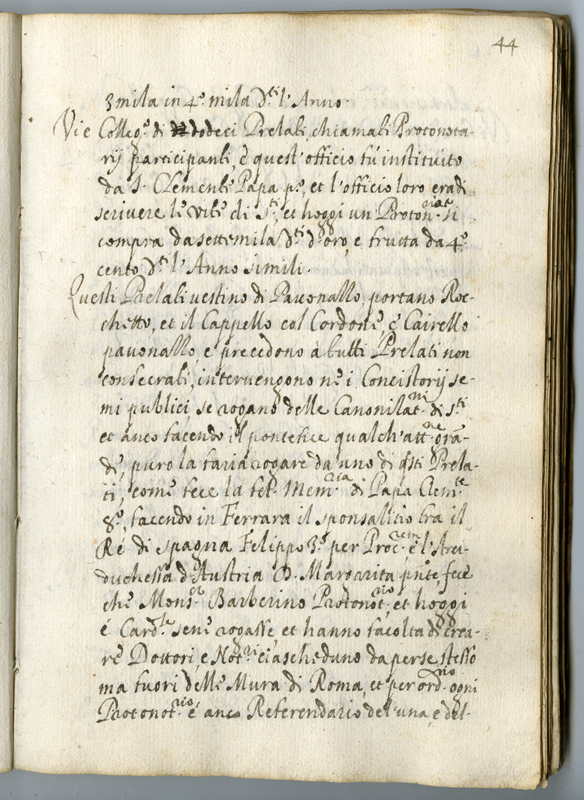 44
3 mila in 4.º mila d.ti l'Anno.
Vi è Colleg.º di dodeci Prelati chiamati Protonota-
rij participanti, è quest'officio fù instituito
da S. Clemente Papa p.º, et l'officio loro era di
scrivere le vite di S.ti, et hoggi un Proton.riat si
compra da settemila d.ti d'oro, e frutta da 4.º
cento d.ti l'Anno simili.
Questi Prelati vestino di Pavonallo, portano Roc-
chetto, et il Cappello col Cordone, è Cairello
pavonallo, e precedono à tutti Prelati non
consecrati, intervengono ne i Concistorij se-
mi publici, se rogano delle Canonilat.ni di s.ti
et anco facendo il pontefice qualch'att.ne gran-
de, puro la faria rogare da uno di q.sti Prela-
ti, come fece la fel. Mem.ria di Papa Clem.te
8.º, facendo in Ferrara il sponsalitio tra il
Rè di spagna Felippo 3.º per Proc.rem è l'Arci-
duchessa d'Austria D. Margarita p.nte, fece
che Mons.or Barberino Protonot.rio, et hoggi
è Card.le sene rogasse, et hanno facoltà di crea-
re Dottori, e Not.ri ciascheduno da per se stesso
ma fuori delle Mura di Roma, et per ord.rio ogni
Protonot.rio è anco Referendario del'una, e del-